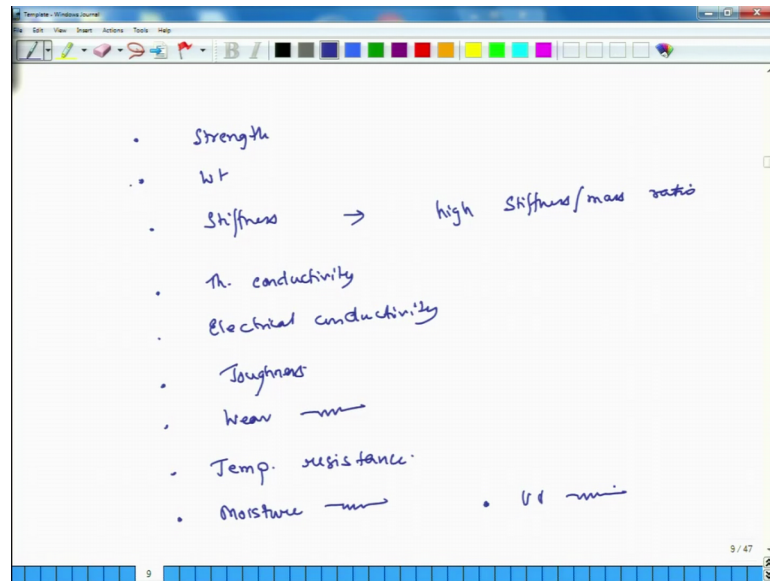 Template - Windows Journal
File Edit View Insert Actions Tools Help
B I
• Strength
• Wt
• Stiffness → high Stiffness/mass ratio
• Th. conductivity
• Electrical conductivity
• Toughness
• Wear
• Temp. resistance.
• Moisture
9 / 47
9